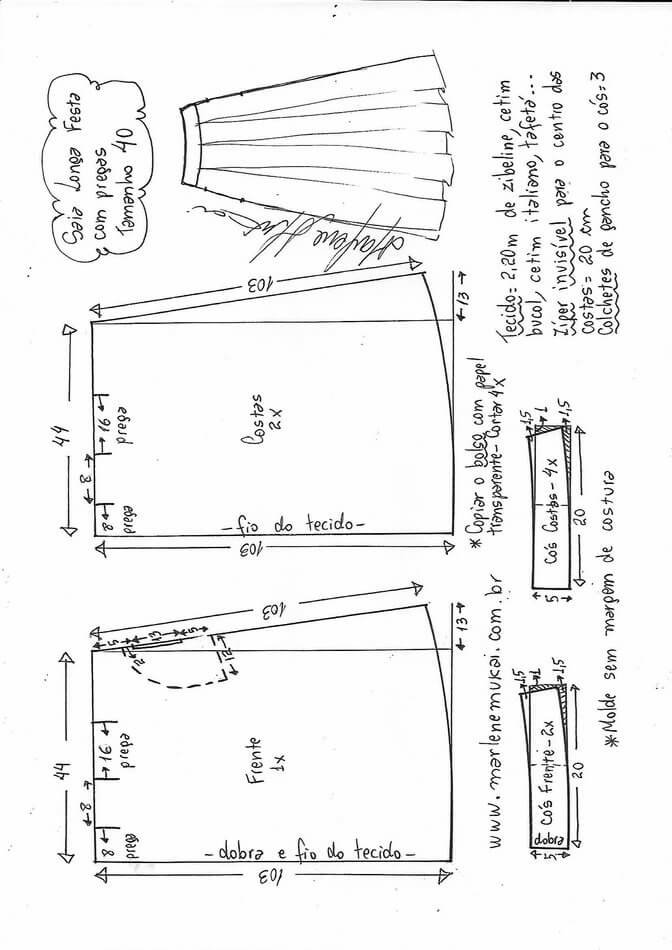 Saia Longa Festa
com pregas
Tamanho 40
Tecido= 2,20m de zibeline, cetim
bucol, cetim italiano, tafetá...
Zíper invisível para o centro das
costas= 20 cm
Colchetes de gancho para o cós=3
103
44
16
prega
8
8
prega
Costas
2x
-fio do tecido-
103
13
*Copiar o bolso com papel
transparente- Cortar 4x
1,5
1
1,5
Cós Costas-4x
20
5
103
5
13
5
12
12
44
16
prega
8
8
prega
Frente
1x
-dobra e fio do tecido-
103
13
www.marlenemukai.com.br
1,5
1
1,5
Cós Frente-2x
dobra
20
5
*Molde sem margem de costura